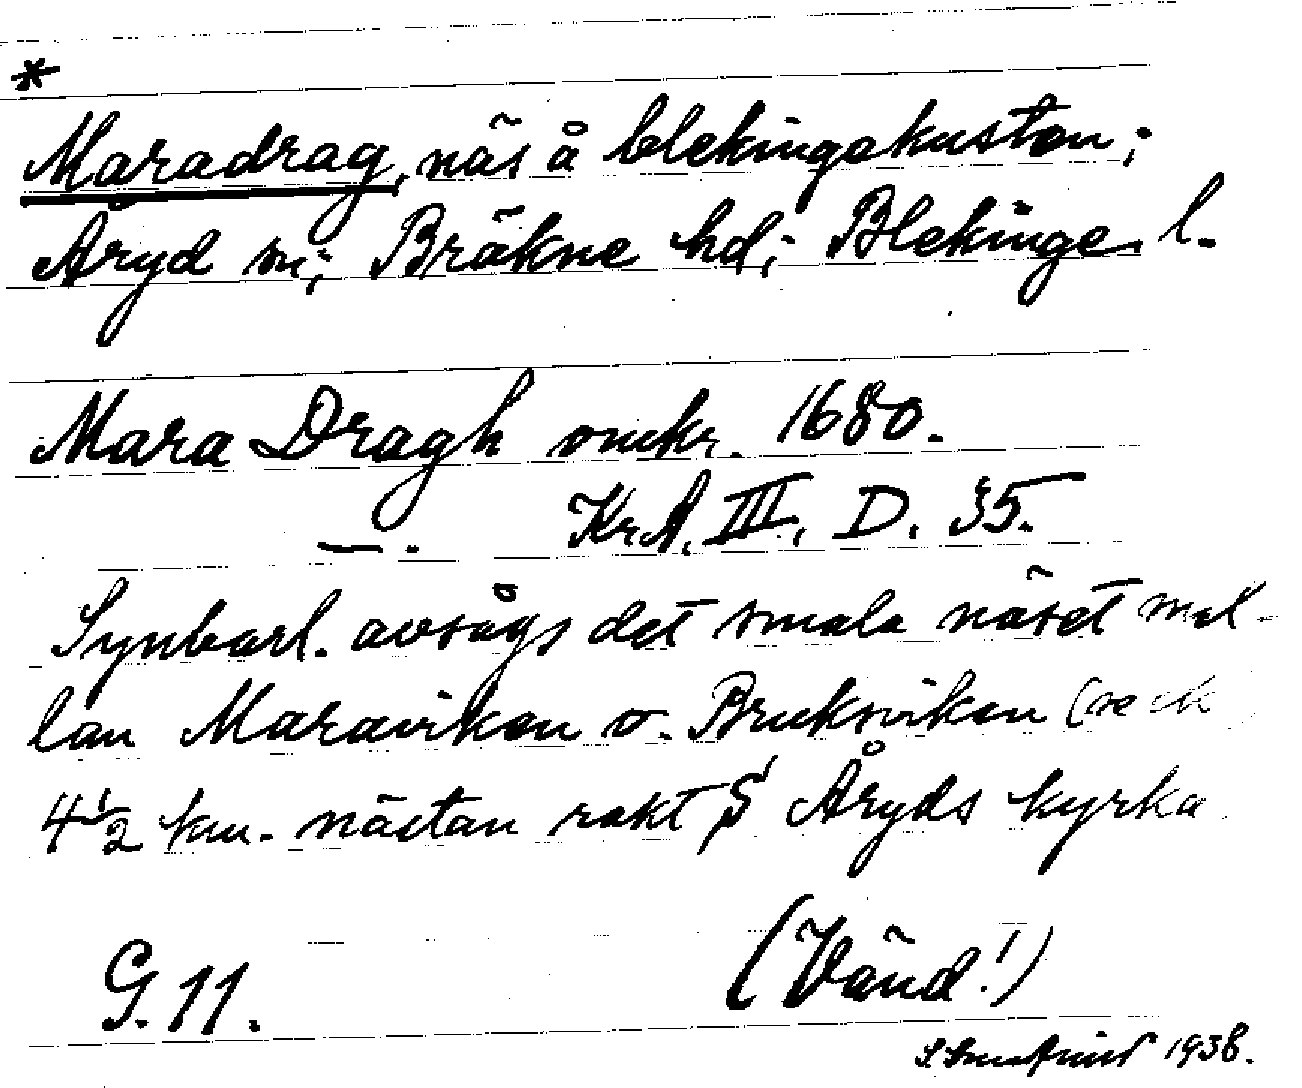 *
Maradrag, näs å blekingekusten;
Åryd sn; Bräkne hd; Blekinge l.
Mara Dragh omkr. 1680.
— . KrA. III, D. 35.
Synbarl. avsågs det smala näset mel-
lan Maraviken o. Bruksviken
4 1/2 km. nästan rakt S Åryds kyrka
G. 11. (Vänd!)
1938.